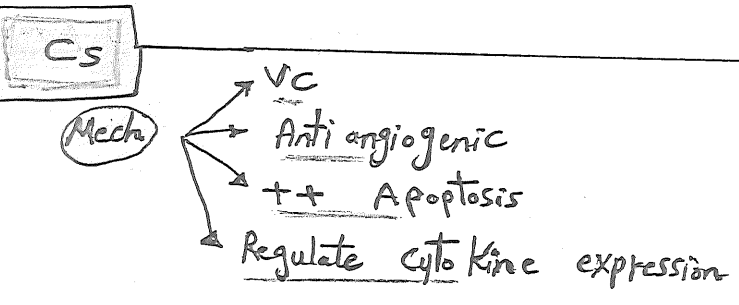 Cs
Mech
VC
Anti angiogenic
++ Apoptosis
Regulate cytokine expression